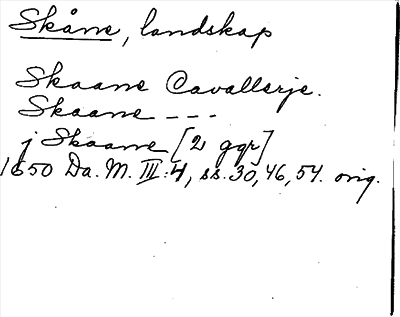 Skåne, landskap
Skaane Cavallerje.
Skaane ---
j Skaane [2 ggr]
1650 Da. M. III:4, ss. 30, 46, 54. orig.